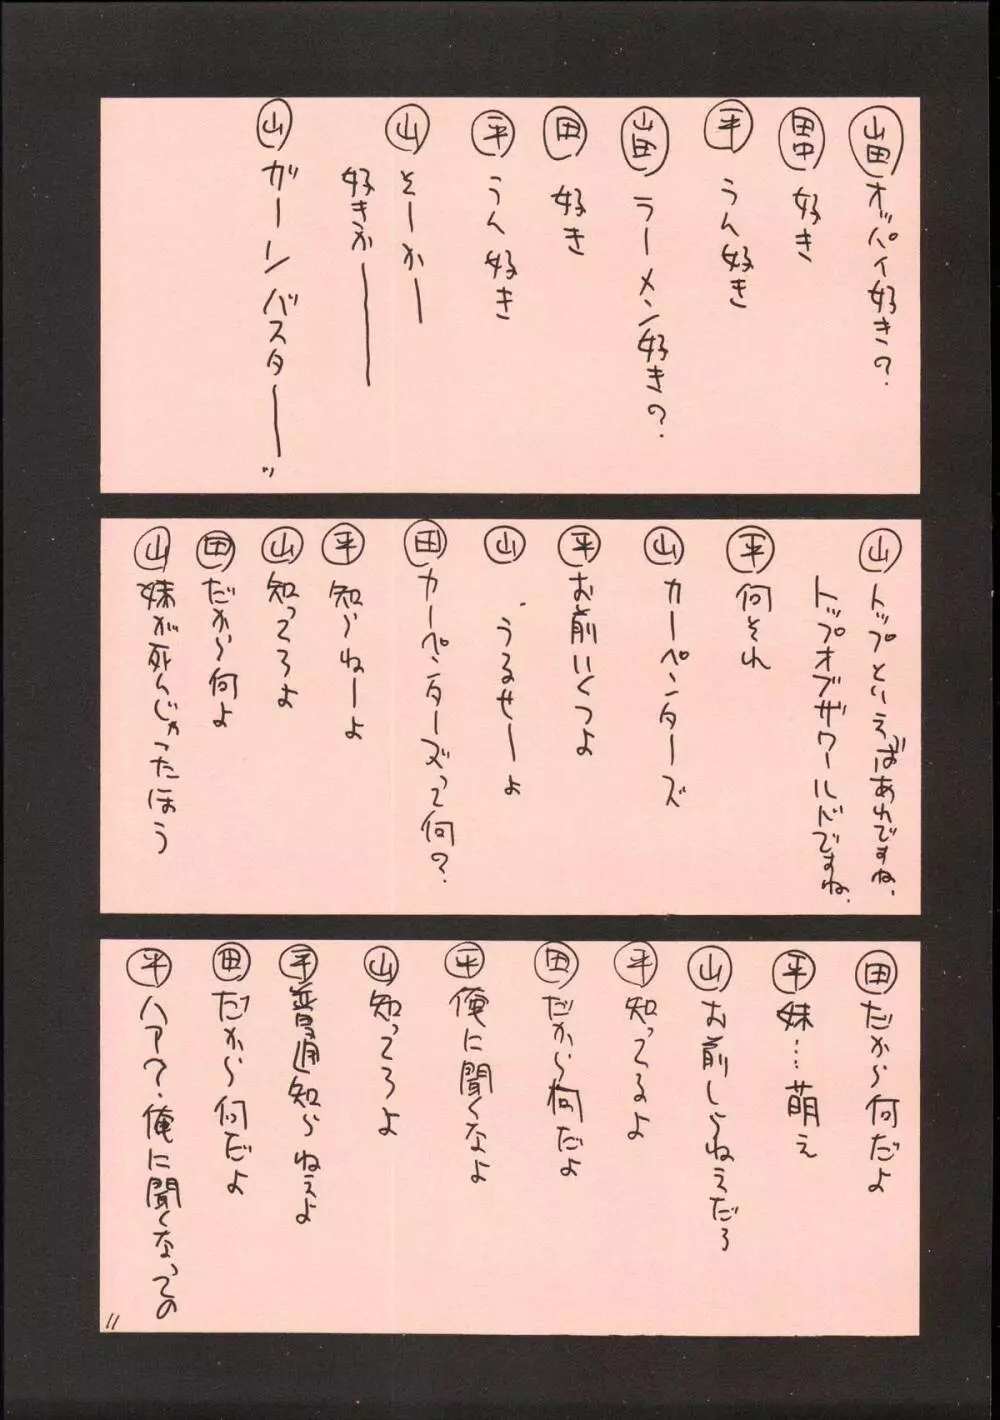 山田 オッパイ好きの?
田中 好き
平 うん好き
山田 ラーメン好きの?
田 好き
平 うん好き
山 そーかー
好きかー
山 ガーンバスター!!
山 トップといえばあれですね、
トップオブザワールドですね、
平 何それ
山 カーペンターズ
平 お前いくつよ
山 うるせーよ
田 カーペンターズって何?
平 知らねーよ
山 知ってろよ
田 だから何よ
山 妹が死んじゃったほう
田 だから何だよ
平 妹…萌え
山 お前しらねえだろ
平 知ってるよ
田 だから何だよ
平 俺に聞くなよ
山 知ってろよ
平 普通知らねぇよ
田 だから何だよ
平 ハア?俺に聞くなっての
11